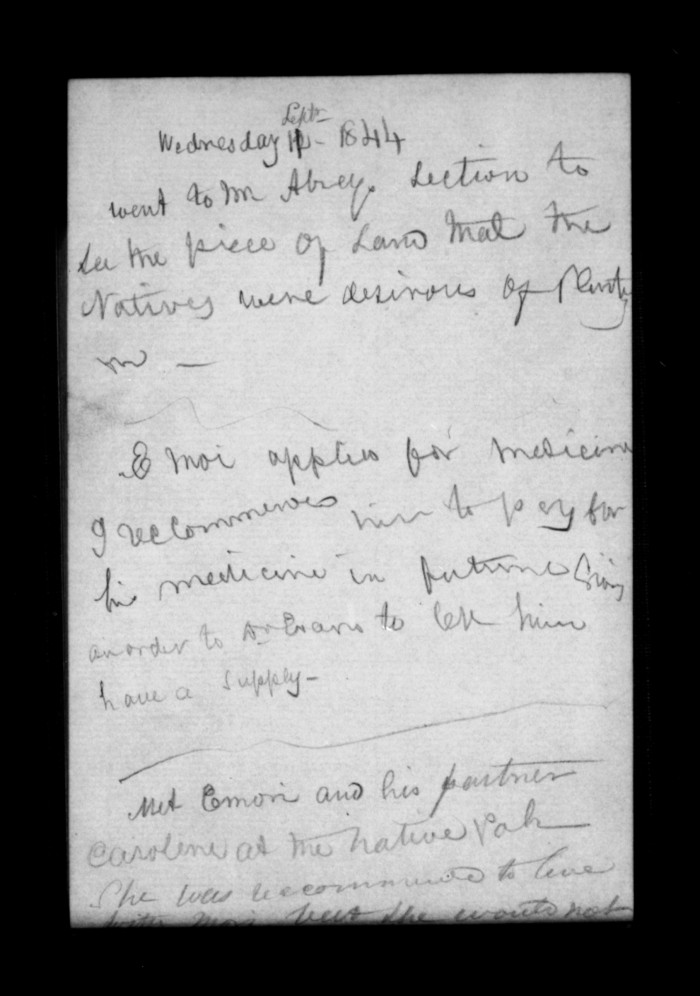 Septr
Wednesday 11 - 1844
went to Mr Abreys Section to
see the piece of Land that the
Natives were desirous of
on —
E Moi applies for medicine
I recommended him to pay for
his medicine in future Giving
an order to Dr Evans to let him
have a supply -
Met Emoii and his partner
Caroline at the native Pah
She was recommended to live
with Moi but she would not